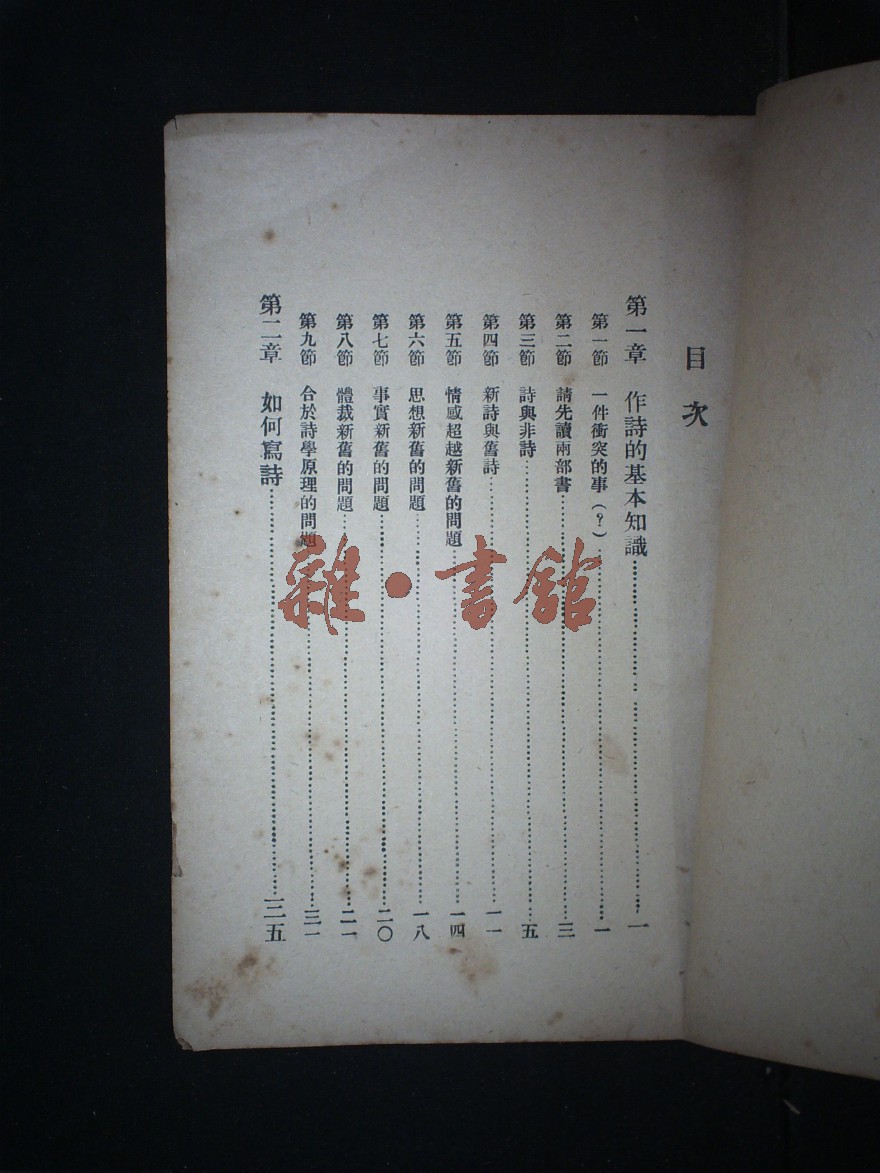 目次
第一章 作詩的基本知識……一
第一節 一件衝突的事(?)……一
第二節 請先讀兩部書……三
第三節 詩與非詩……五
第四節 新詩與舊詩……一一
第五節 情感超越新舊的問題……一四
第六節 思想新舊的問題……一八
第七節 事實新舊的問題……二〇
第八節 體裁新舊的問題……二一
第九節 合於詩學原理的問題……三一
第二章 如何寫詩……三五
雜·書館